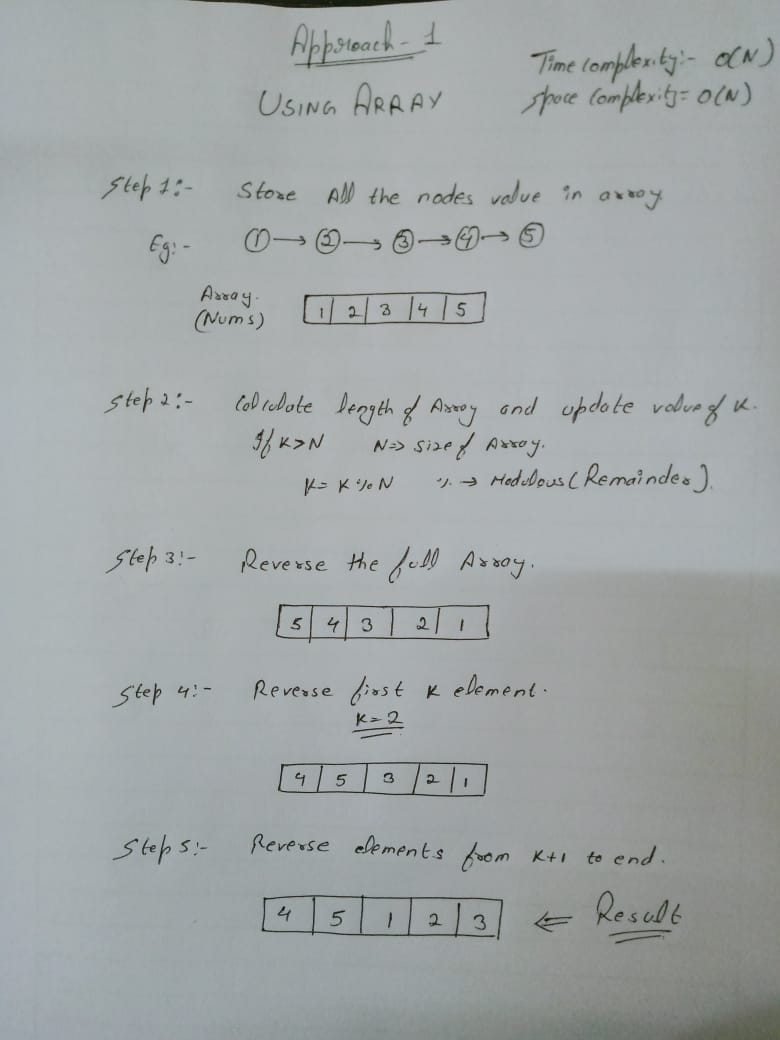 Approach - 1
USING ARRAY
Time complexity:- O(N)
Space complexity= O(N)
Step 1:- Store All the nodes value in array
Eg:- 1 → 2 → 3 → 4 → 5
Array.
(Nums) 1 | 2 | 3 | 4 | 5
Step 2:- Calculate length of Array and update value of K.
If K>N N=> Size of Array.
K= K % N % → Modulous (Remainder).
Step 3:- Reverse the full Array.
5 | 4 | 3 | 2 | 1
Step 4:- Reverse first K element.
K=2
4 | 5 | 3 | 2 | 1
Step 5:- Reverse elements from K+1 to end.
4 | 5 | 1 | 2 | 3 ⇐ Result